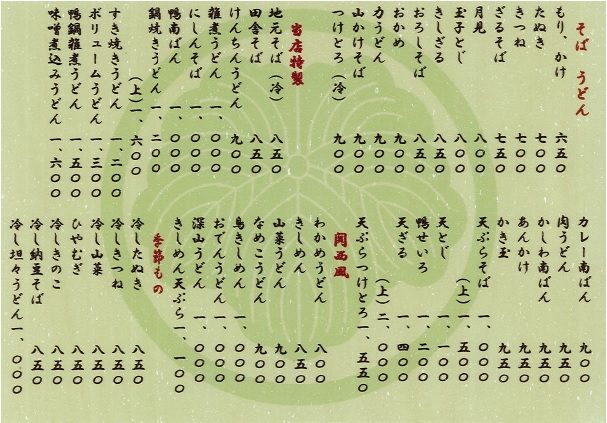 そば うどん
もり、かけ 六五〇
たぬき 七〇〇
きつね 七〇〇
ざるそば 七五〇
月見 八〇〇
玉子とじ 八〇〇
きしざる 八五〇
おろしそば 八五〇
おかめ 九〇〇
力うどん 九〇〇
山かけそば 九〇〇
つけとろ(冷) 九〇〇
当店特製
地元そば(冷) 八五〇
田舎そば 八五〇
けんちんうどん 九〇〇
雑煮うどん 一、〇〇〇
にしんそば 一、〇〇〇
鴨南ばん 一、〇〇〇
鍋焼きうどん 一、二〇〇
(上)一、六〇〇
すき焼きうどん 一、二〇〇
ボリュームうどん 一、三〇〇
鴨鍋雑煮うどん 一、五〇〇
味噌煮込みうどん 一、六〇〇
カレー南ばん 九〇〇
肉うどん 九五〇
かしわ南ばん 九五〇
あんかけ 九五〇
かき玉 九五〇
天ぷらそば 一、〇〇〇
(上)一、五〇〇
天とじ 一、一〇〇
鴨せいろ 一、二〇〇
天ざる 一、四〇〇
(上)二、〇〇〇
天ぷらつけとろ 一、五五〇
関西風
わかめうどん 八〇〇
きしめん 八五〇
山菜うどん 九〇〇
なめこうどん 九〇〇
鳥きしめん 一、〇〇〇
おでんうどん 一、〇〇〇
深山うどん 一、〇〇〇
きしめん天ぷら 一、一〇〇
季節もの
冷したぬき 八五〇
冷しきつね 八五〇
冷し山菜 八五〇
ひやむぎ 八五〇
冷しきのこ 八五〇
冷し納豆そば 八五〇
冷し坦々うどん 一、〇〇〇